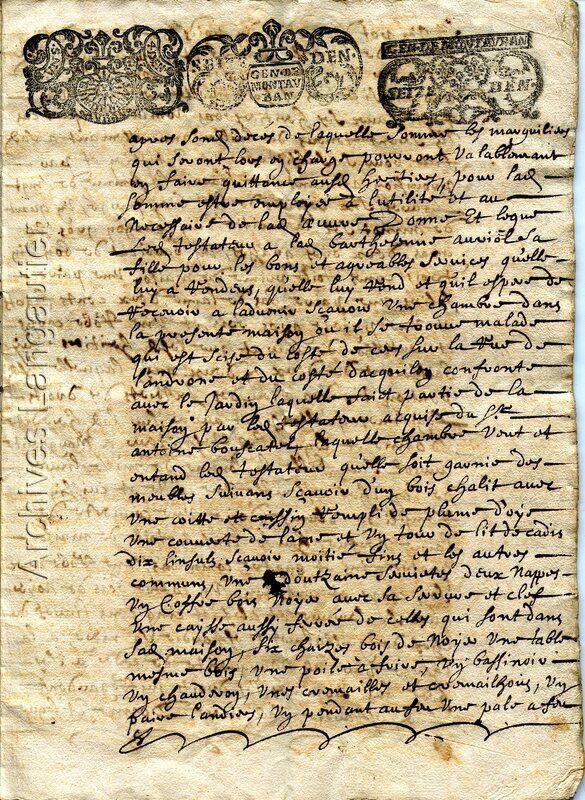 SEIZE DEN
GEN DE MONTAUBAN
GEN DE MONTAUBAN
SEIZE DEN
apres sond deces de laquelle somme les marguiliers
qui seront lors en charge pourront valablemant
en faire quittance ausd heritiers, pour lad
somme estre employée a lutilité et au
Necessaire de lad œuvre, Donne Et legue
Led testateur a lad barthelemie auriol sa
fille pour les bons et agreables services quelle
luy a rendeus, quelle luy rend et quil espere de
recevoir a ladvenir scavoir Une chambre dans
la presente maison ou il se trouve malade
qui est scise du costé de cers sur la rue de
landrone et du costé dacquilon confronte
avec le Jardin laquelle faict partie de la
maison par led testateur acquise du Sr
antoine bouscatel laquelle chambre veut et
entand led testateur quelle soit garnie des
meubles suivans scavoir dun bois chalit avec
Une coitte et cuissin rempli de plume doye
Une couverte de laine et un tour de lit de cadis
dix linsuls scavoir moitie fins et les autres
communs, Une doutzaine serviettes deux Nappes
un Coffre bois Noyer avec sa serrure et clef
Une caysse aussi ferrée de celles qui sont dans
lad maison, six chaizes bois de Noyer Une table
mesme bois, une poile a frire, un bassinoir
un chauderon, unes cremailles et cremailhons, un
paire landiers, un pendant au feu Une pale a feu
Archives Langauffer